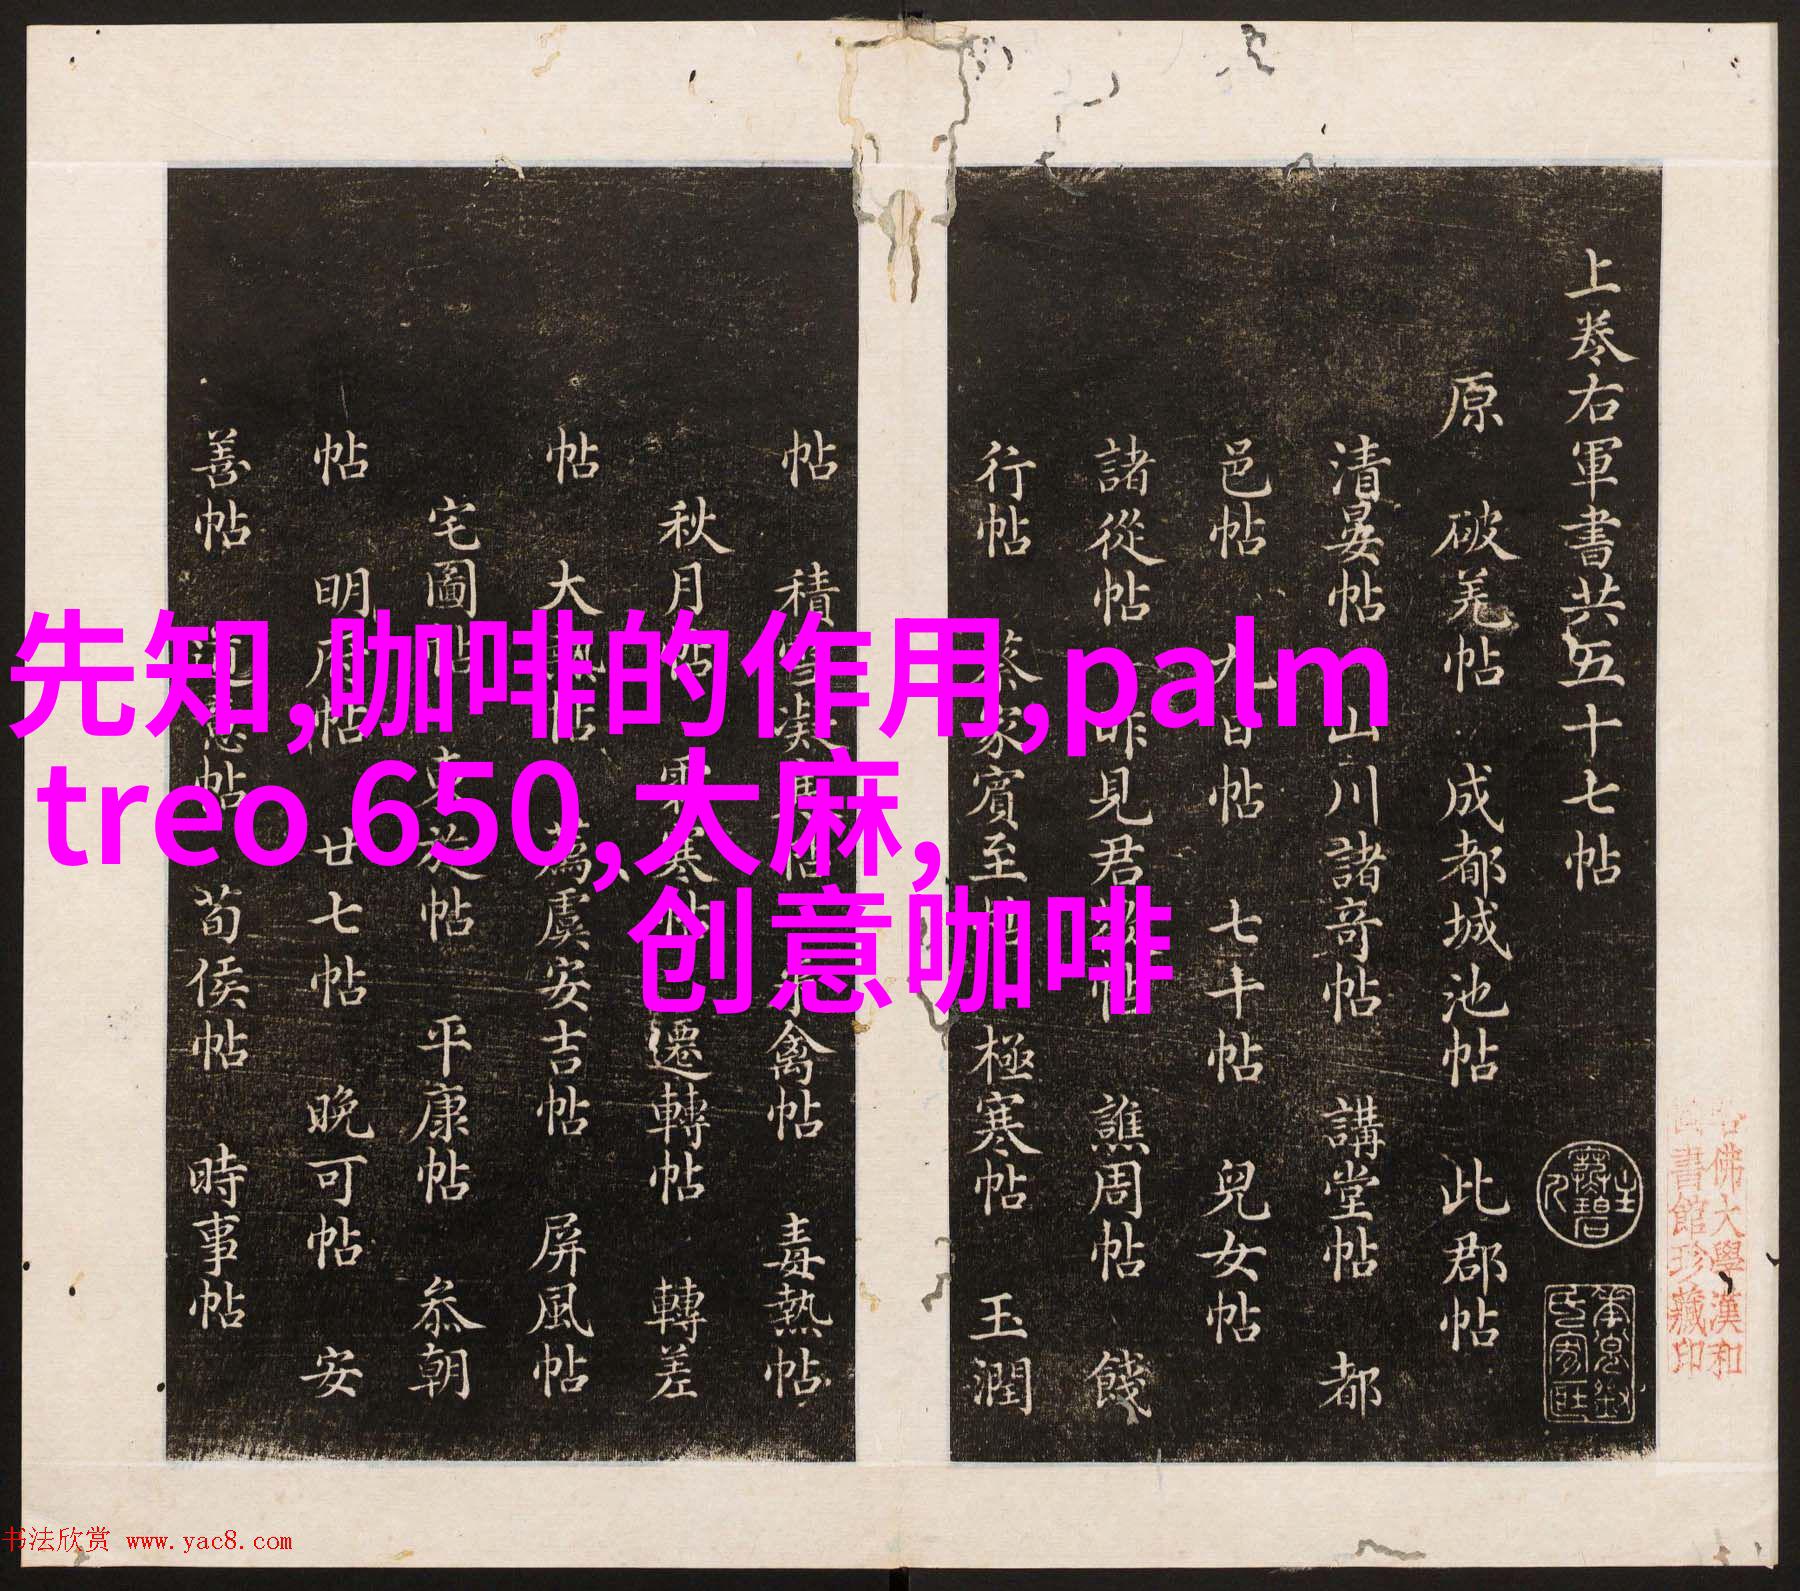 先知,咖啡的作用,palm
treo 650,大麻,
创意咖啡
上卷右軍書共五十七帖
原 破羌帖 成都城池帖 此郡帖
清晏帖 山川諸奇帖 講堂帖 都
邑帖 九日帖 七十帖 兒女帖
諸從帖 昨見君 帖 譙周帖 餞
行帖 蔡家賓至帖 極寒帖 玉潤
帖 積雪凝寒帖 來禽帖 毒熱帖
秋月帖 霜寒帖 遷轉帖 轉差
帖 大熱帖 蔿虞安吉帖 屏風帖
宅圖帖 從帖 平康帖 叅朝
帖 明府帖 廿七帖 晚可帖 安
善帖 帖 荀侯帖 時事帖
佛大學漢和
書館珍藏印
书法欣赏 www.yac8.com